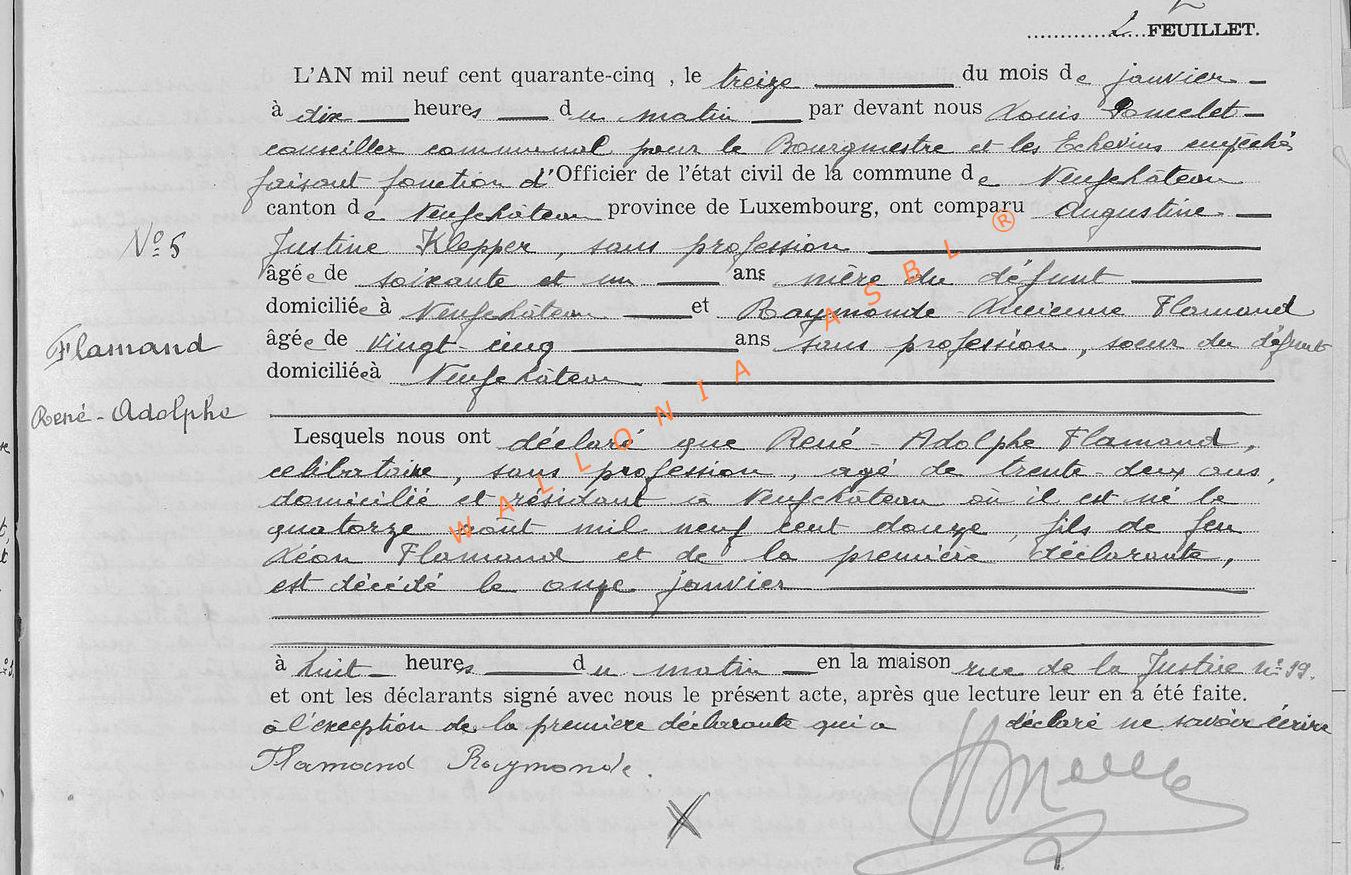 2 FEUILLET.
L'AN mil neuf cent quarante-cinq , le treize du mois de janvier
à dix heures du matin par devant nous Louis
conseiller communal pour le Bourgmestre et les Echevins empêchés
faisant fonction d'Officier de l'état civil de la commune de Neufchâteau
canton de Neufchâteau province de Luxembourg, ont comparu Augustine
N° 5
Justine Klepper, sans profession
âgée de soixante et un ans mère du défunt
domiciliée à Neufchâteau et Raymonde-Lucienne Flamand
Flamand
âgée de vingt-cinq ans sans profession, soeur du défunt
domiciliée à Neufchâteau
René-Adolphe
Lesquels nous ont déclaré que René-Adolphe Flamand,
célibataire, sans profession, agé de trente-deux ans,
domicilié et résidant à Neufchâteau où il est né le
quatorze août mil neuf cent douze, fils de feu
Léon Flamand et de la première déclarante,
est décédé le onze janvier
à huit heures du matin en la maison rue de la Justice n° 19.
et ont les déclarants signé avec nous le présent acte, après que lecture leur en a été faite.
à l'exception de la première déclarante qui a déclaré ne savoir écrire
Flamand Raymonde.
WALLONIA ASBL ®